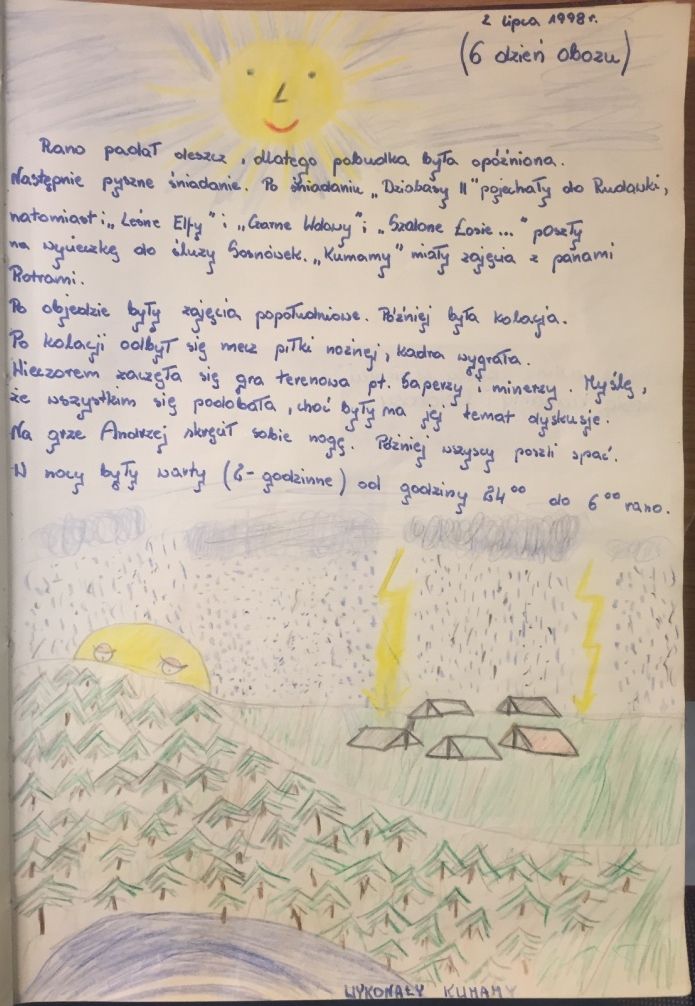 2 lipca 1998r.
(6 dzień obozu)
Rano padał deszcz, dlatego pobudka była opóźniona.
Następnie pyszne śniadanie. Po śniadaniu „Dziobasy II" pojechały do Rudawki,
natomiast i „Leśne Elfy" i „Czarne Wdowy" i „Szalone Łosie..." poszły
na wycieczkę do śluzy Sosnówek. „Kumamy" miały zajęcia z panami
Piotrami.
Po objedzie były zajęcia popołudniowe. Później była kolacja.
Po kolacji odbył się mecz piłki nożnej, kadra wygrała.
Wieczorem zaczęła się gra terenowa pt. Saperzy i minerzy. Myślę,
że wszystkim się podobała, choć były na jej temat dyskusje.
Na grze Andrzej skręcił sobie nogę. Później wszyscy poszli spać.
W nocy były warty (2-godzinne) od godziny 24⁰⁰ do 6⁰⁰ rano.
WYKONAŁY KUMAMY